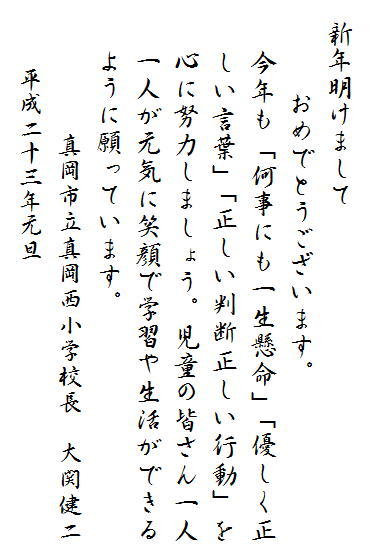 新年明けまして
おめでとうございます。
今年も「何事にも一生懸命」「優しく正
しい言葉」「正しい判断正しい行動」を
心に努力しましょう。児童の皆さん一人
一人が元気に笑顔で学習や生活ができる
ように願っています。
真岡市立真岡西小学校長　大関健二
平成二十三年元旦